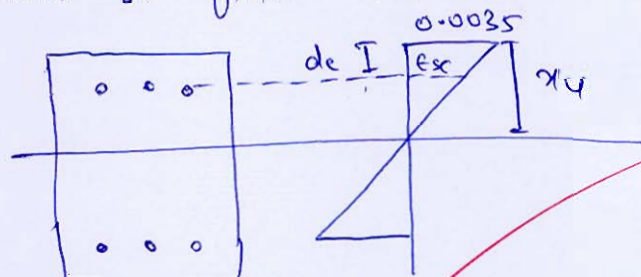 0.0035
dc
Esc
xu